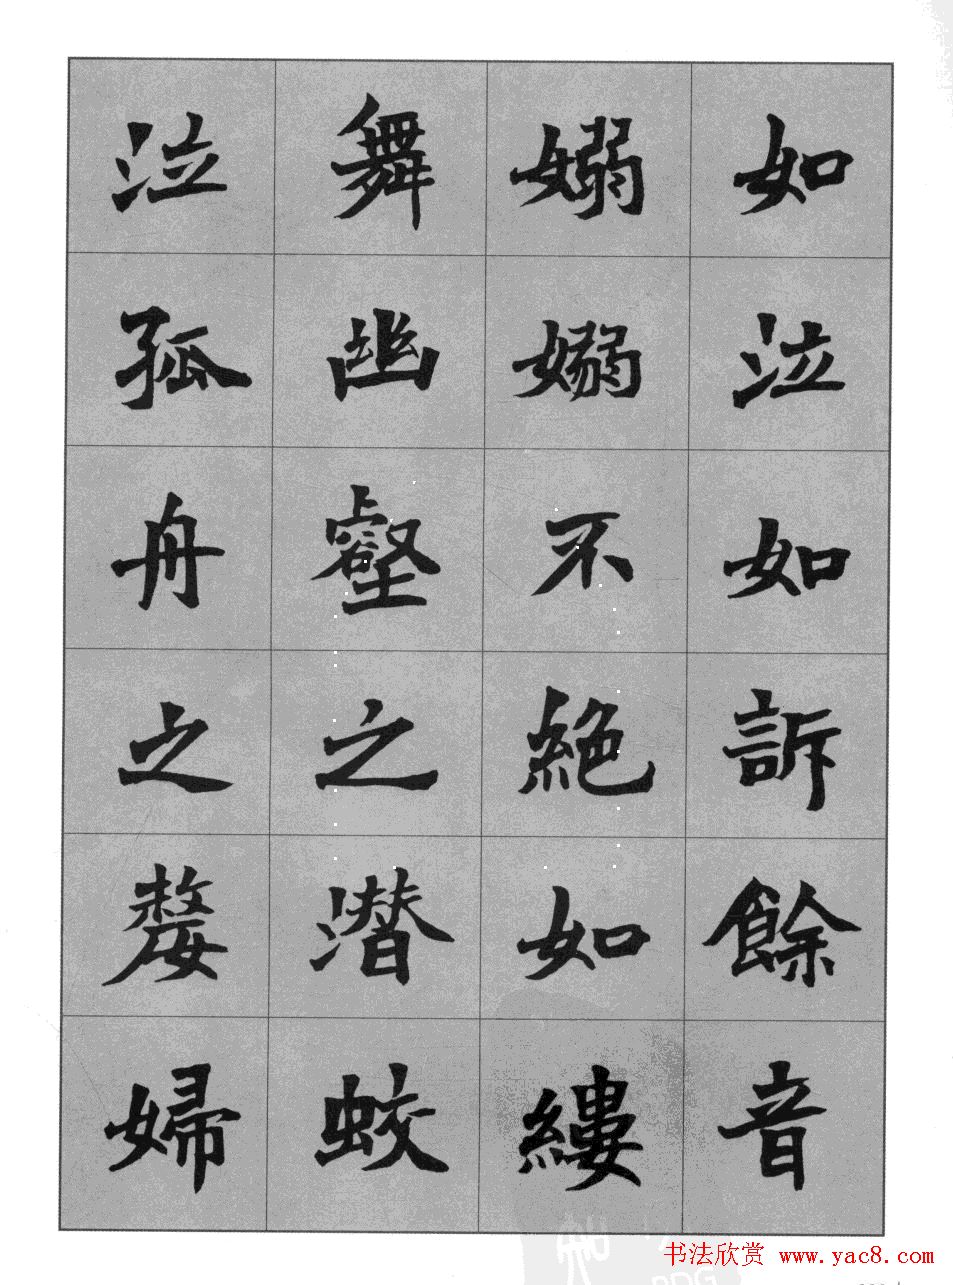 如泣如訴餘音
嫋嫋不絕如縷
舞幽壑之潛蛟
泣孤舟之嫠婦
书法欣赏 www.yac8.com